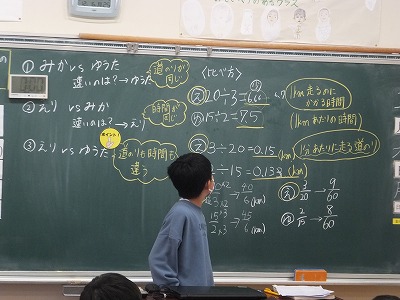 ① みか vs ゆうた
違いのは?→ゆうた
道のりが同じ
② えり vs みか
違いのは?→えり
時間が同じ
③ えり vs ゆうた
道のりも時間も違う
ポイント!
〈比べ方〉
え 20÷3=6.66…
1km走るのにかかる時間
ゆ 15÷2=7.5
(1kmあたりの時間)
え 3÷20=0.15(km)
1分あたりに走る道のり
÷15=0.133(km)
え 3/20→9/60
ゆ 2/15→8/60
→40/6(km)
15×3/2×3→45/6(km)